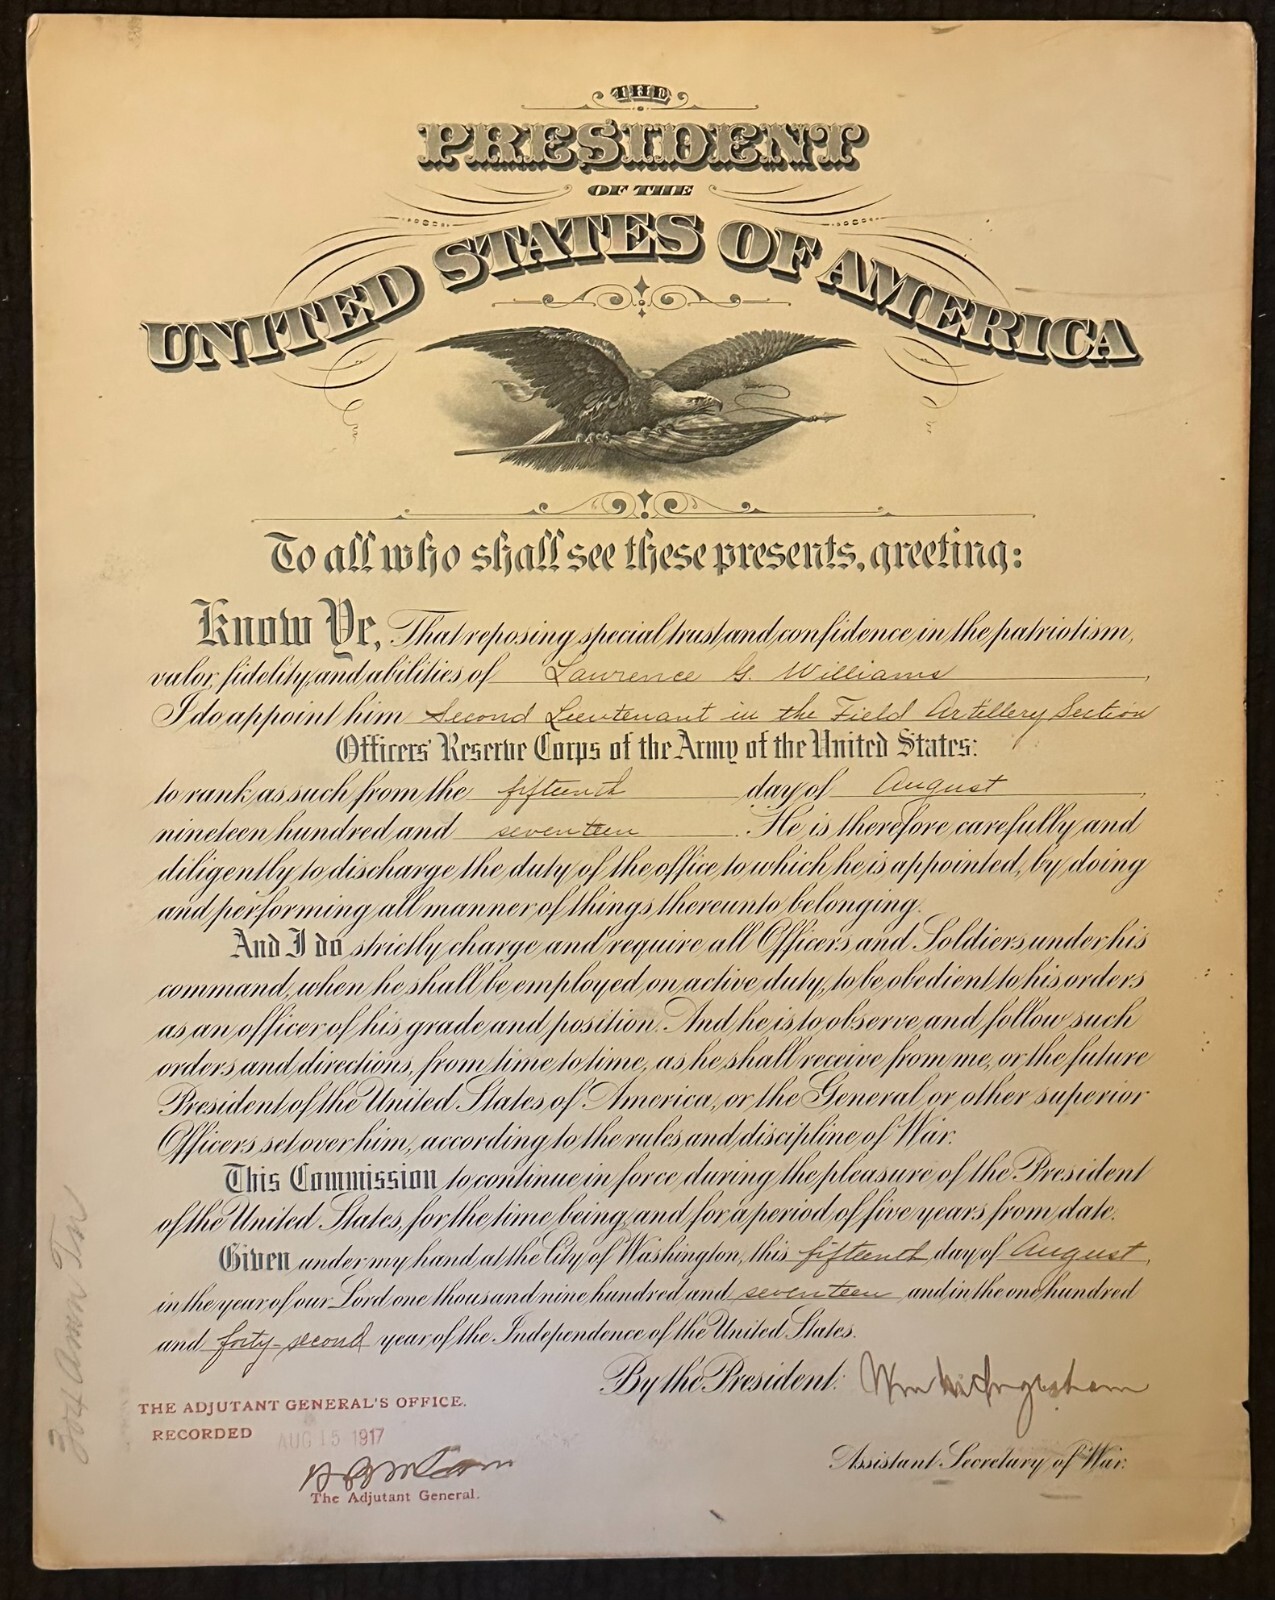 THE
PRESIDENT
OF THE
UNITED STATES OF AMERICA
To all who shall see these presents, greeting:
Know Ye, That reposing special trust and confidence in the patriotism,
valor, fidelity, and abilities of Lawrence G. Williams,
I do appoint him Second Lieutenant in the Field Artillery Section
Officers' Reserve Corps of the Army of the United States:
to rank as such from the fifteenth day of August,
nineteen hundred and seventeen. He is therefore carefully and
diligently to discharge the duty of the office to which he is appointed, by doing
and performing all manner of things thereunto belonging.
And I do strictly charge and require all Officers and Soldiers under his
command, when he shall be employed on active duty, to be obedient to his orders
as an officer of his grade and position. And he is to observe and follow such
orders and directions, from time to time, as he shall receive from me, or the future
President of the United States of America, or the General or other superior
Officers set over him, according to the rules and discipline of War.
This Commission to continue in force during the pleasure of the President
of the United States, for the time being, and for a period of five years from date.
Given under my hand, at the City of Washington, this fifteenth day of August,
in the year of our Lord one thousand nine hundred and seventeen and in the one hundred
and forty-second year of the Independence of the United States.
By the President: Wm M. Ingraham
Assistant Secretary of War.
THE ADJUTANT GENERAL'S OFFICE.
RECORDED AUG 15 1917
The Adjutant General.
304 Amm Tn